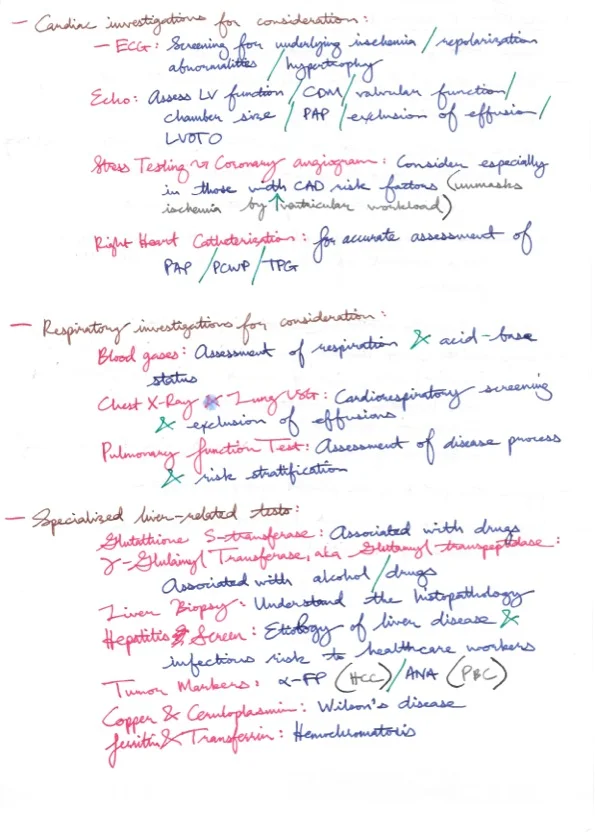 - Cardiac investigations for consideration:
- ECG: Screening for underlying ischemia / repolarization
abnormalities / hypertrophy
Echo: Assess LV function / CDM / valvular function /
chamber size / PAP / exclusion of effusion /
LVOTO
Stress Testing or Coronary angiogram: Consider especially
in those with CAD risk factors (unmasks
ischemia by ↑ ventricular workload)
Right Heart Catheterization: for accurate assessment of
PAP / PCWP / TPG
- Respiratory investigations for consideration:
Blood gases: Assessment of respiration & acid-base
status
Chest X-Ray & Lung USG: Cardiorespiratory screening
& exclusion of effusions
Pulmonary function Test: Assessment of disease process
& risk stratification
- Specialized liver-related tests:
Glutathione S-transferase: Associated with drugs
γ-Glutamyl Transferase, aka Glutamyl transpeptidase:
Associated with alcohol / drugs
Liver Biopsy: Understand the histopathology
Hepatitis Screen: Etiology of liver disease &
infectious risk to healthcare workers
Tumor Markers: α-FP (HCC) / ANA (PBC)
Copper & Ceruloplasmin: Wilson's disease
ferritin & Transferrin: Hemochromatosis